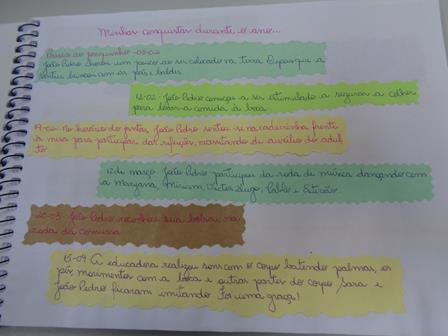 Minhas conquistas durante o ano...
Passeio ao parquinho - 05-02
João Pedro chorou um pouco ao ser colocado na terra. Depois que a
sentiu brincou com as pás e baldes
12-02 - João Pedro começa a ser estimulado a segurar a colher
para levar a comida à boca
19-02 no horário do jantar, João Pedro sentou-se na cadeirinha frente
à mesa para participar das refeições, necessitando de auxílio do adul
to
12 de março João Pedro participou da roda de música dançando com
a Mariana, Miriam, Victor Hugo, Pablo e Estevão
20-03- João Pedro reconheceu sua bolsa na
roda da conversa
15-04 A educadora realizou sons com o corpo batendo palmas, os
pés, movimentos com a boca e outras partes do corpo. Sara e
João Pedro ficaram imitando. Foi uma graça!